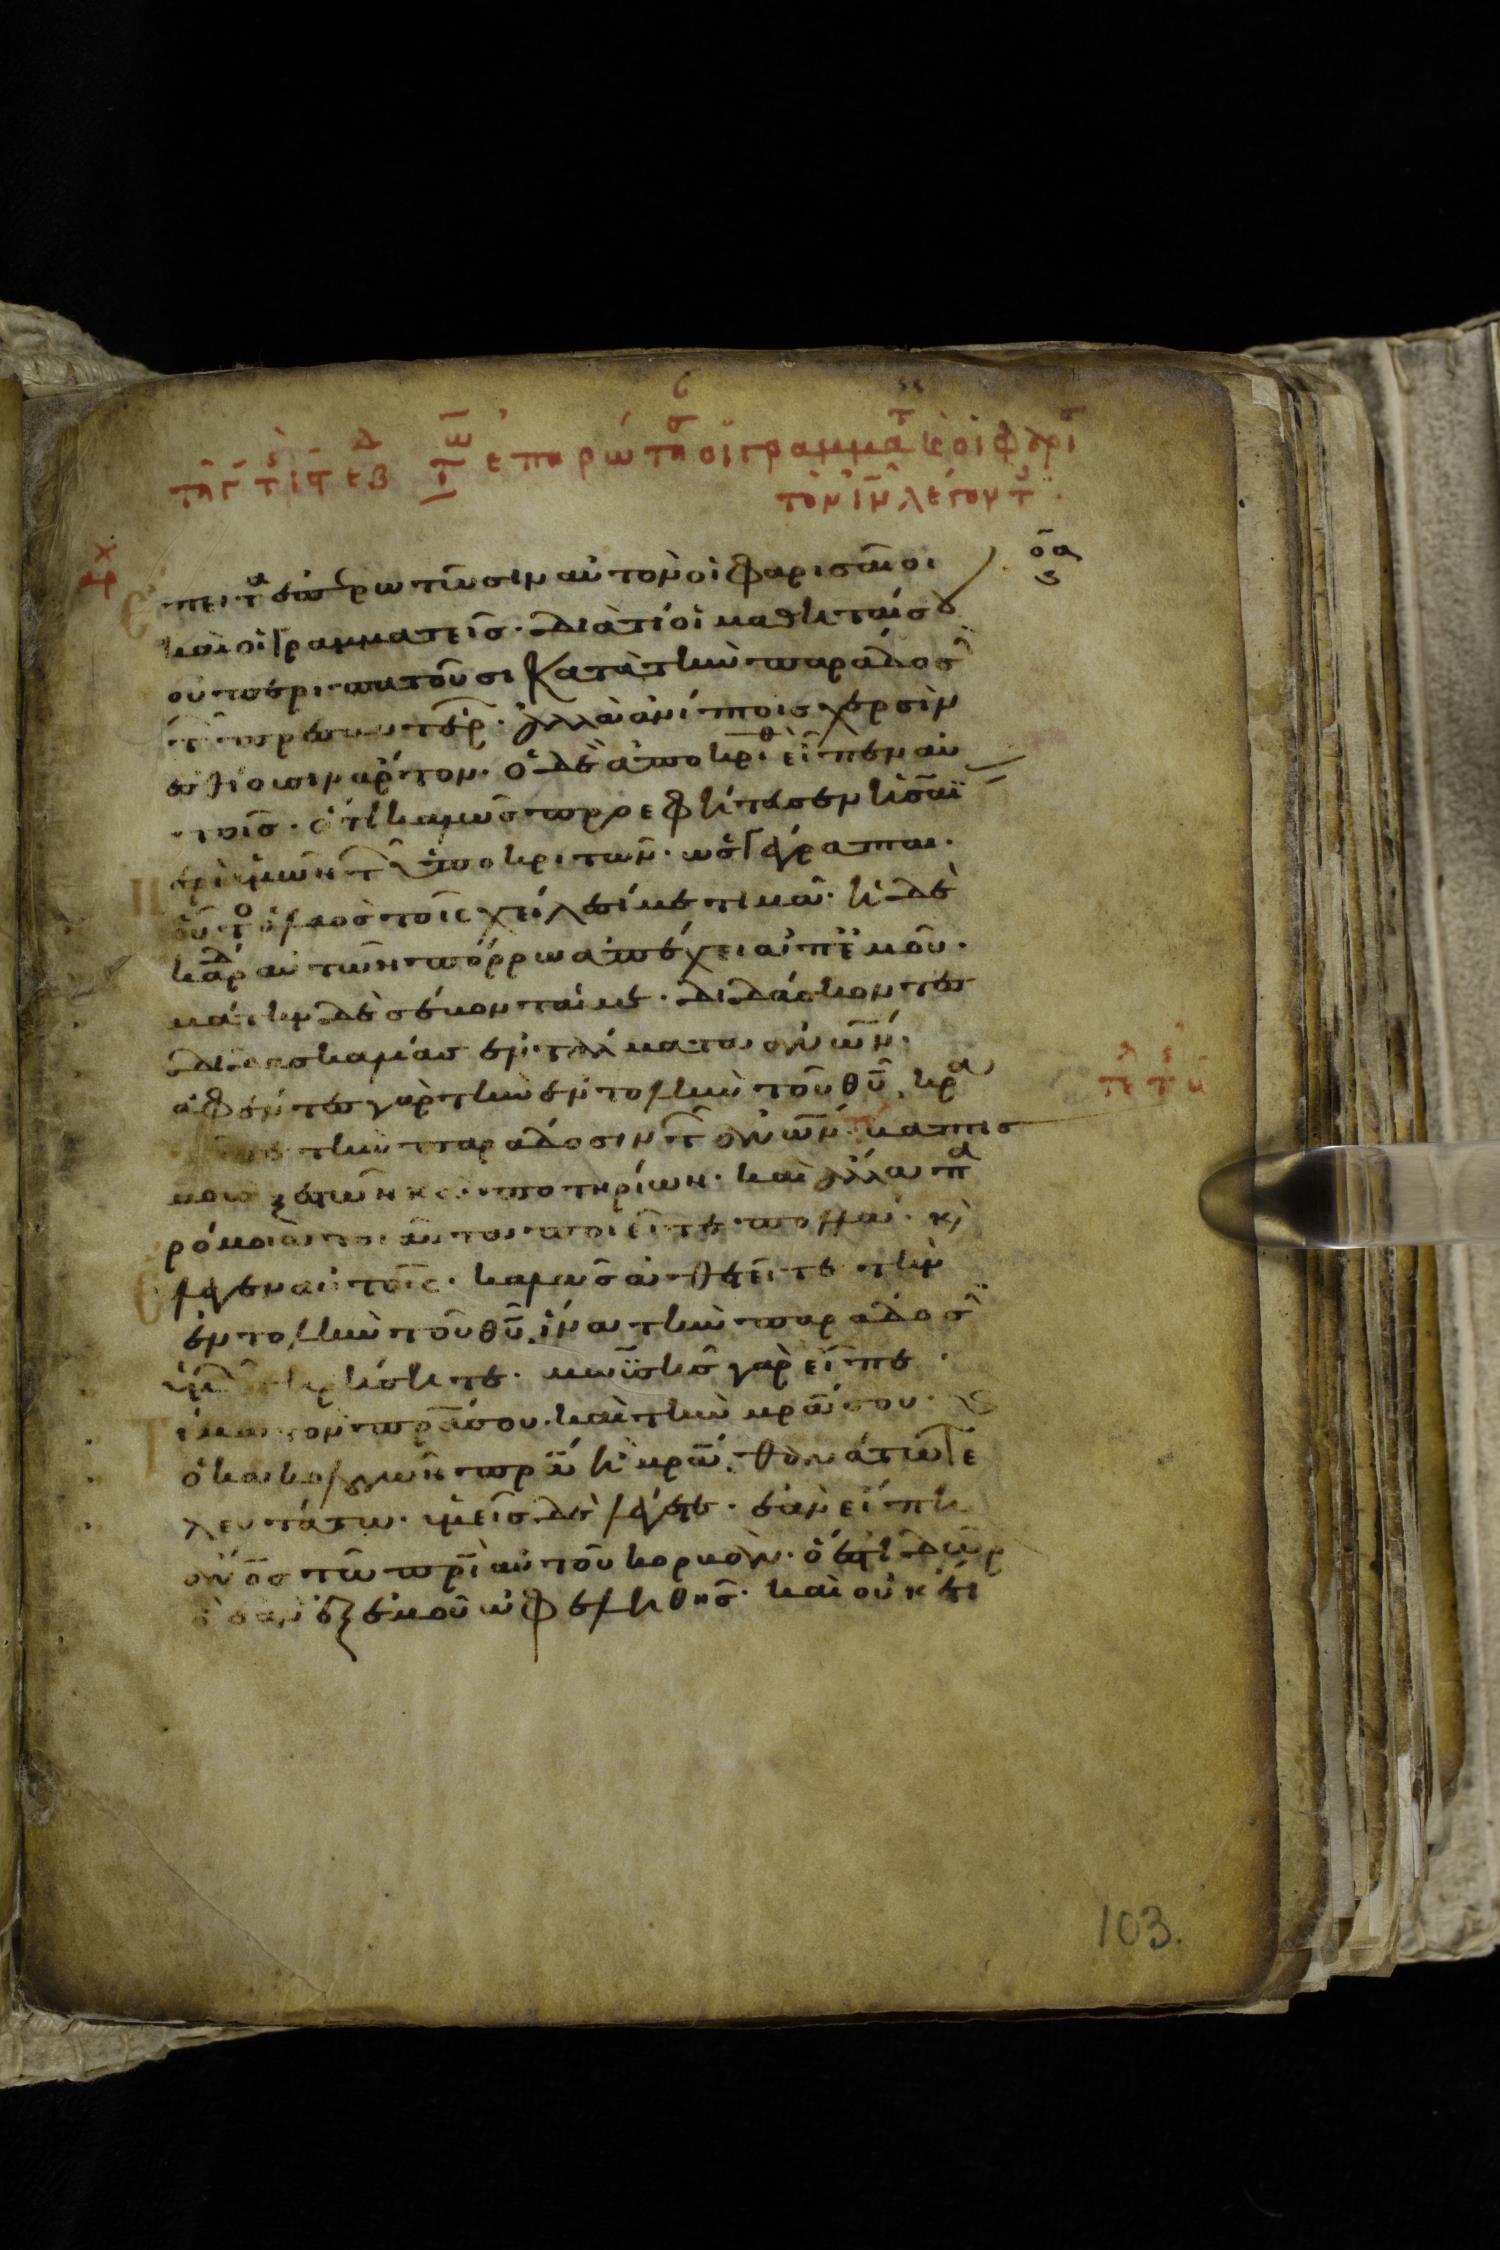 τῆ γ τῆς ις εβδ τω κ επηρώτησ οἱ γραμμα κ οἱ φαρι
τὸν ιν λέγοντ
αρχ
ἔπειτα ἐπερωτῶσιν αὐτὸν οἱ φαρισαῖοι
καὶ οἱ γραμματεῖς· διατί οἱ μαθηταί σου
οὐ περιπατοῦσι κατὰ τὴν παράδοσ
τ πρεσβυτέρ· ἀλλὰ ἀνίπτοις χερσὶν
ἐσθίουσιν ἄρτον· ὁ δὲ ἀποκριθ εἶπεν αὐ
τοῖς· ὅτι καλῶς προεφήτευσεν ἡσαΐ
περὶ ὑμῶν τ ὑποκριτῶν· ὡς γέγραπται·
οὗτο ὁ λαὸς τοῖς χείλεσί με τιμᾶ· ἡ δὲ
καρδ αὐτῶν πόρρω ἀπέχει ἀπ ἐμοῦ·
μάτην δὲ σέβονταί με· διδάσκοντες
διδασκαλίας ἐντάλματα ανων·
ἀφέντες γὰρ τὴν ἐντολὴν τοῦ θυ κρα
τεῖτε τὴν παράδοσιν τ ανων· βαπτισ
μοὺς ξεστῶν κ ποτηρίων· καὶ ἄλλα πα
ρόμοια τοιαῦτα ποιεῖτε πολλά· κ
ἔλεγεν αὐτοῖς· καλῶς ἀθετεῖτε τὴν
ἐντολὴν τοῦ θυ ἵνα τὴν παράδοσ
ὑμῶν τηρήσητε· μωϋσῆς γὰρ εἶπε·
τίμα τὸν πρα σου· καὶ τὴν μρα σου·
ὁ κακολογῶν πρα ἢ μρα θανάτω τε
λευτάτω· ὑμεῖς δὲ λέγετε· ἐὰν εἴπη
ανος τῶ πρι αὐτοῦ κορβᾶν· ὅ ἐστι δῶρ
ὃ ἐὰν ἐξ ἐμοῦ ὠφεληθῆς· καὶ οὐκέτι
103.